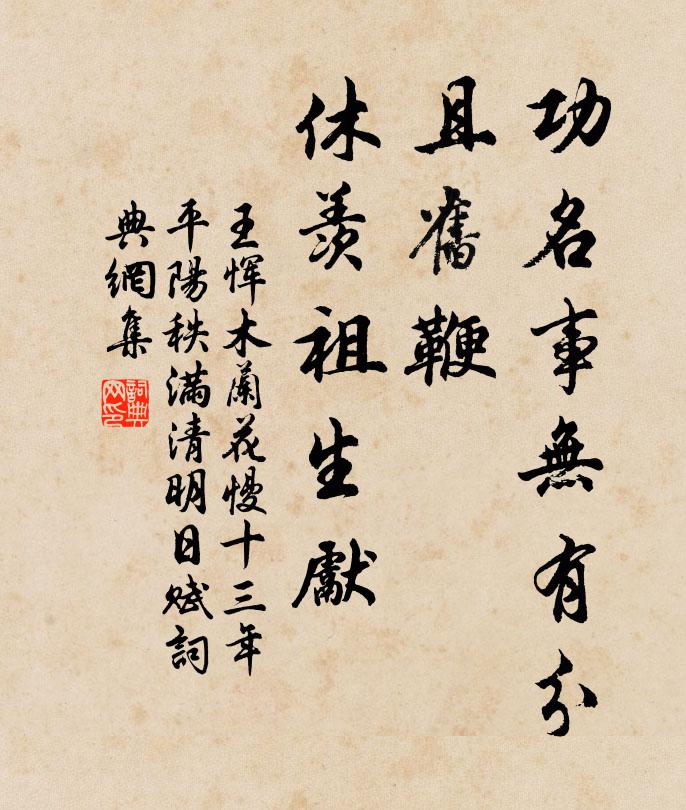 功名事無有分
且奮鞭
休羨祖生獻
王惲木蘭花慢十三年
平陽秩滿清明日賦詞
典網集
詞典網印